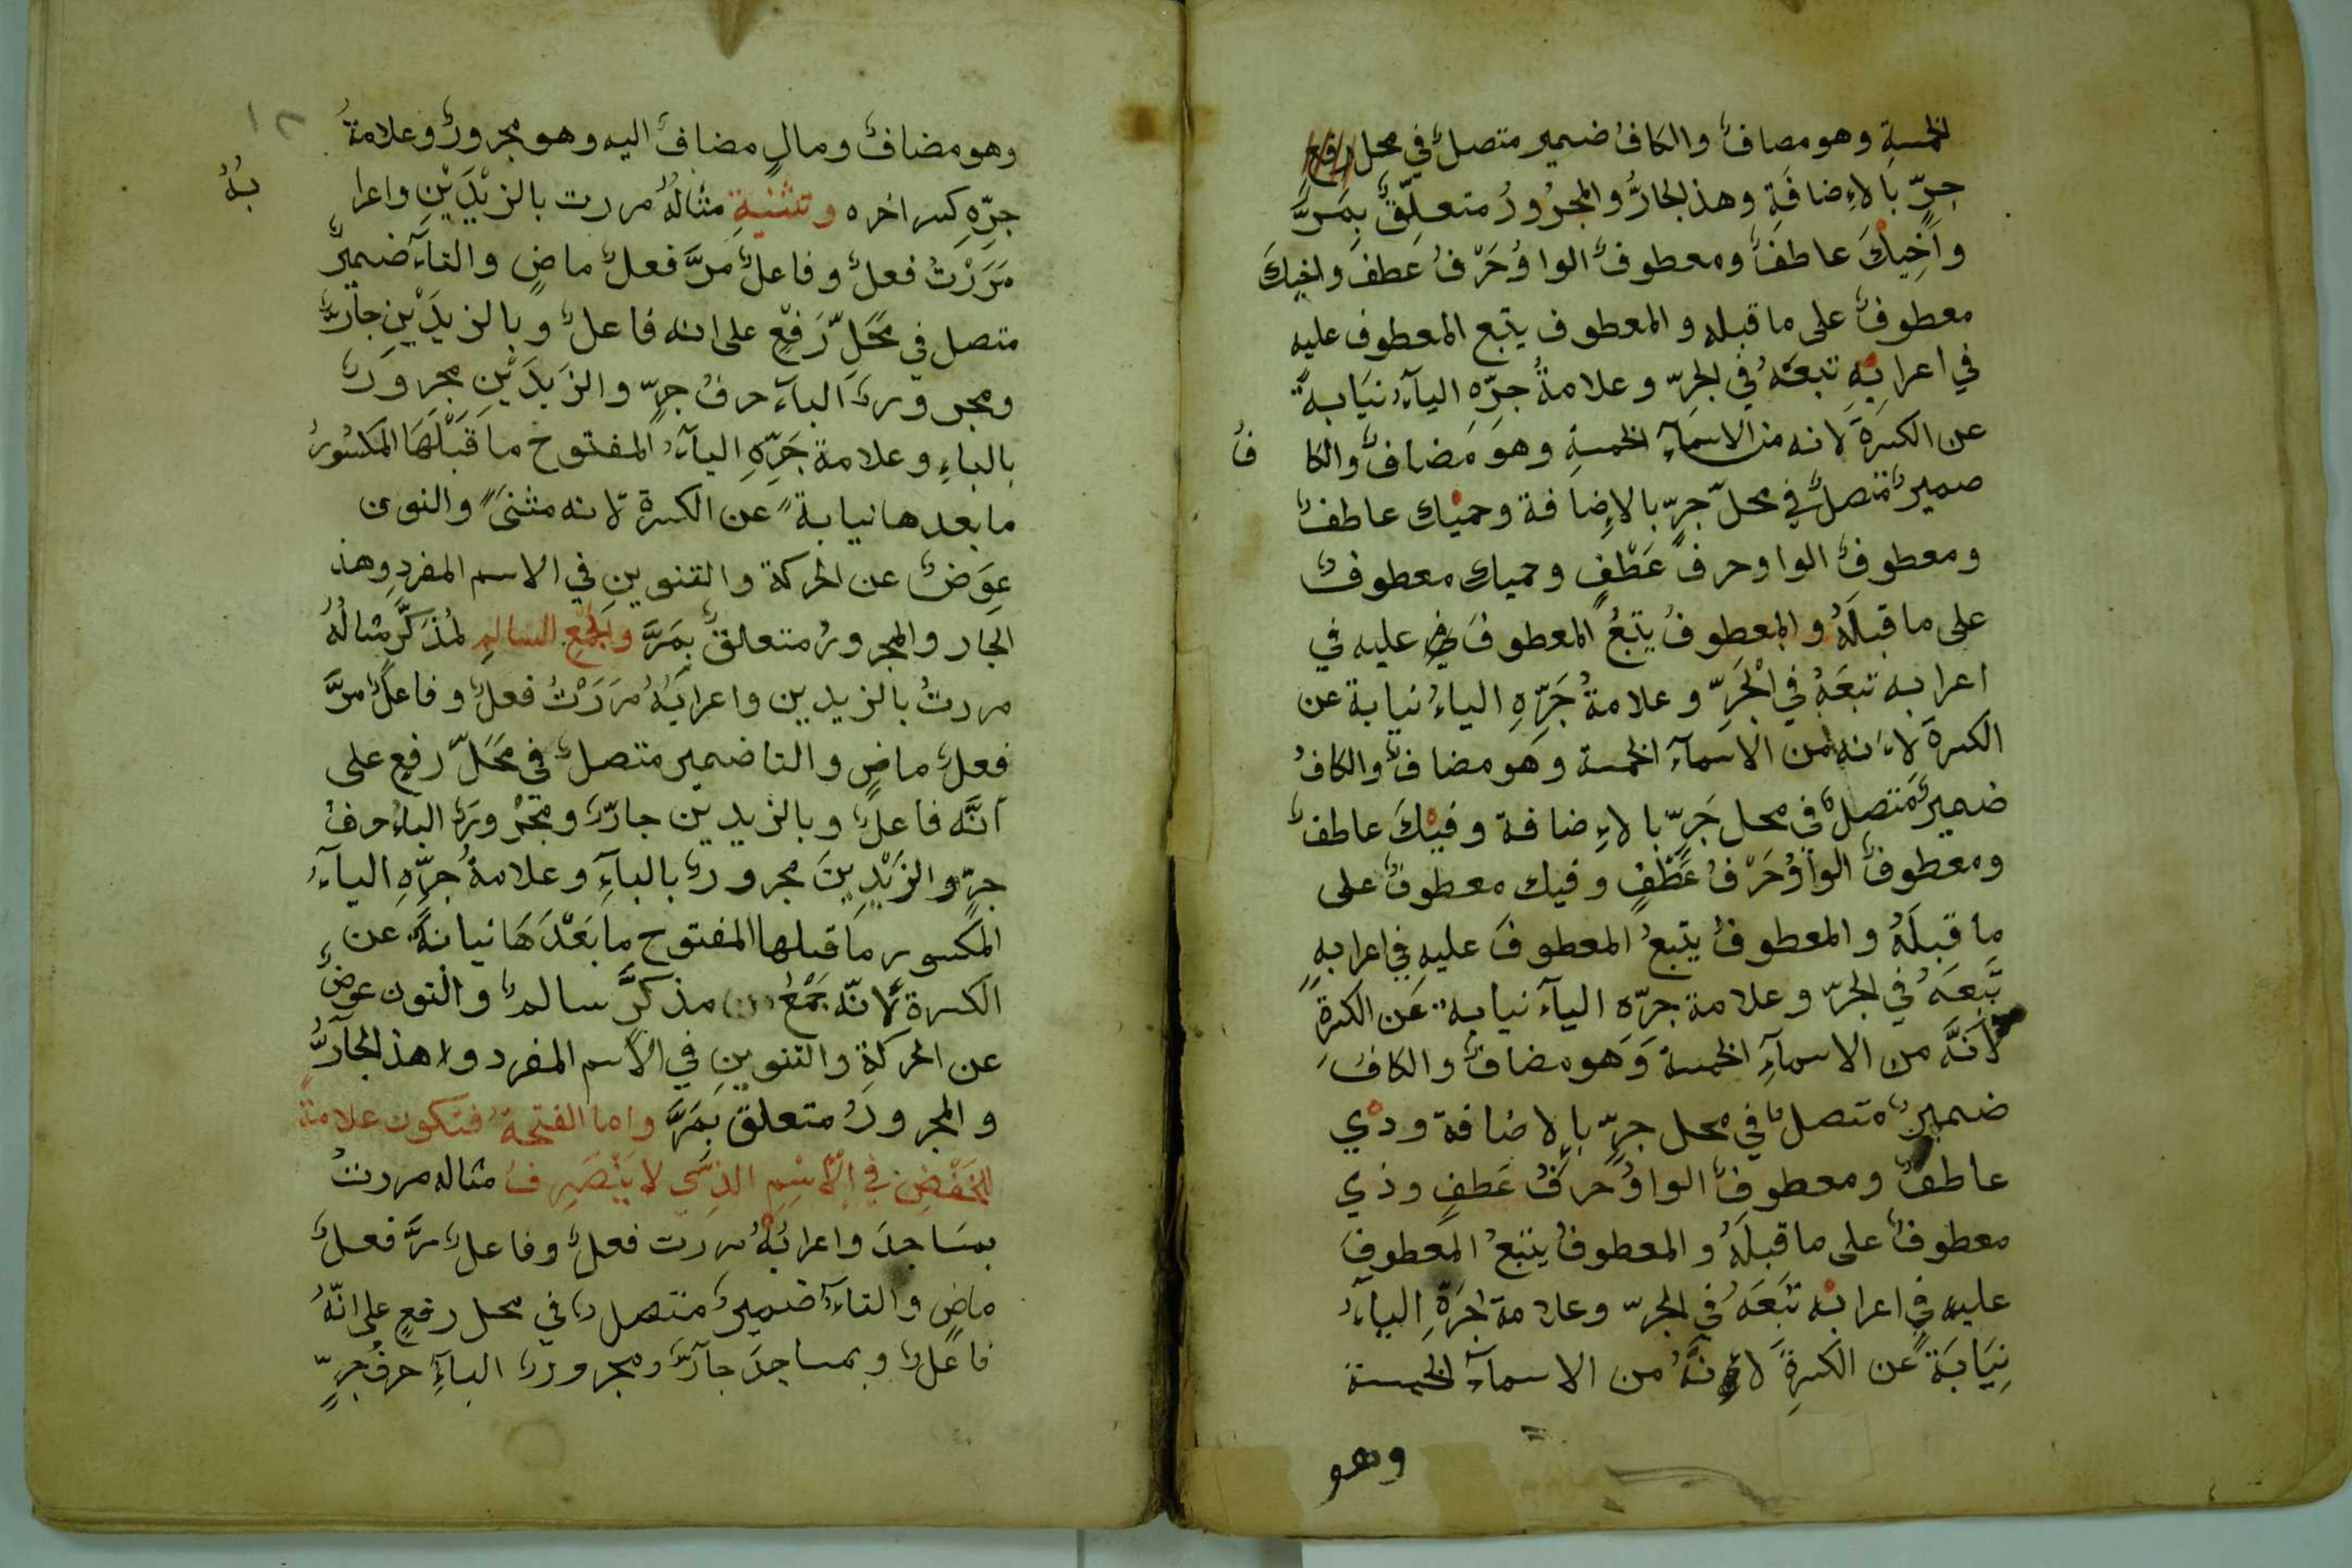 الخمسةِ وهو مضافٌ والكافُ ضمير متصلٌ في محلِ رفعٍ
جرٍّ بالاءِضافَةِ وهذ الجارُّ والمجرُورُ متعلِّقٌ بِمَرَّ
وَاَخِيْكَ عاطفٌ ومعطوفٌ الواوُ حَرْفُ عَطفٍ واخيكَ
معطوفٌ على ما قبله والمعطوف يتبع المعطوف عليه
في اعرابِهِ تبعَهُ في الجرِّ وعلامةُ جرِّهِ اليآءُ نيَابةً
عن الكسرَةِ لانه من الاسمآءِ الخمسةِ وهوَ مَضافٌ والكا فُ
ضميرٌ متصلٌ في محلّ جرٍّ بالاءِضافة وحميْك عاطفٌ
ومعطوفٌ الواو حرف عَطْفٍ وحميك معطوفٌ
على ما قبلَهُ والمعطوفُ يتبَعُ المعطوفَ عليه في
اعرابه تبعَهُ في الْجَرِّ وعلامةُ جَرِّهِ الياءُ نيابة عن
الكسرة لاءَنه من الاسمآءِ الخمسة وهو مضافٌ والكافُ
ضميرٌ متصلٌ في محل جَرٍّ بالاءِضافة وفيْكَ عاطفٌ
ومعطوفٌ الواوُ حَرْفُ عَطْفٍ وفيك معطوفٌ على
ما قبلَهُ والمعطوفُ يتبعُ المعطوفَ عليهِ في اعرابهِ
تَبَعَهُ في الجرّ وعلامة جرّه اليآء نيابة عَن الكسرَةِ
لاَنَّهَ من الاسمآءِ الخمسة وَهو مضافٌ والكافُ
ضميرٌ متصلٌ في محل جرٍّ بالاضافة وذي
عاطفٌ ومعطوفٌ الواوُ حَرفُ عَطفٍ وذي
معطوفٌ على ما قبلَهُ والمعطوفُ يتبعُ المعطوفَ
عليه في اعرابه تَبَعَهُ في الجرّ وعلامة جرِّهِ اليآءُ
نِيَابَةً عن الكسرةِ لانَّهُ من الاسمآءِ الخمسة
وهو
١٢
وهو مضافٌ ومالٍ مضافٌ اليه وهو مجرورٌ وعلامةُ
جرِّهِ كسر اخره وتثنيةِ مثالُهُ مررت بالزيْدَيْنِ واعرا بُهُ
مَرَرْتُ فعلٌ وفاعلٌ مَرَّ فعلٌ ماضٍ والتآءُ ضميرٌ
متصل في مَحَلِّ رَفْعٍ على انه فاعلٌ وبالزيدَيْنِ جآرٌّ
ومجرورٌ البآء حرفُ جرٍّ والزَيدَيْن مجرورٌ
بالباءِ وعلامة جَرِّهِ اليآءُ المفتوح ما قَبْلَهَا المكسُورُ
ما بعدها نيابةً عن الكسرة لانه مثنىً والنون
عِوَضٌ عن الحركة والتنوينِ في الاسم المفردِ وهذ
الجار والمجرورُ متعلقٌ بمَرَّ وَالجمْعِ السالمِ لمُذَكَّرٍ مثالُهُ
مررتُ بالزيدين واعرابُهُ مَرَرْتُ فعلٌ وفاعلٌ مرَّ
فعلٌ ماضٍ والتا ضمير متصلٌ في مَحَلِّ رفعٍ على
اَنَّه فاعلٌ وبالزيدين جارٌّ ومَجْرورٌ الباءُ حرفُ
جرٍّ والزَيْدِينَ مجرورٌ بالبآءِ وعلامةُ جرِّهِ اليآءُ
المكسور ما قبلها المفتوح ما بَعْدَهَا نيابةً عن
الكسرة لاَنّه جَمْعُ مذكَّرٍ سالمٌ والنون عوضٌ
عن الحركةِ والتنوينِ في الاَسم المفرد و هذ الجآرُّ
والمجرورُ متعلق بَمَرَّ واما الفتحةُ فتكون علامةً
للخَفْضِ في الْاِسْمِ الذِي لا يَنْصَرِفُ مثاله مررتُ
بمسَاجدَ واعرابُهُ مررت فعلٌ وفاعلٌ مرَّ فعلٌ
ماضٍ والتآءُ ضميرٌ متصلٌ في محل رفعٍ على انّهُ
فاعلٌ وبمساجدَ جآرٌّ ومجرورٌ البآءِ حرفُ جرٍّ